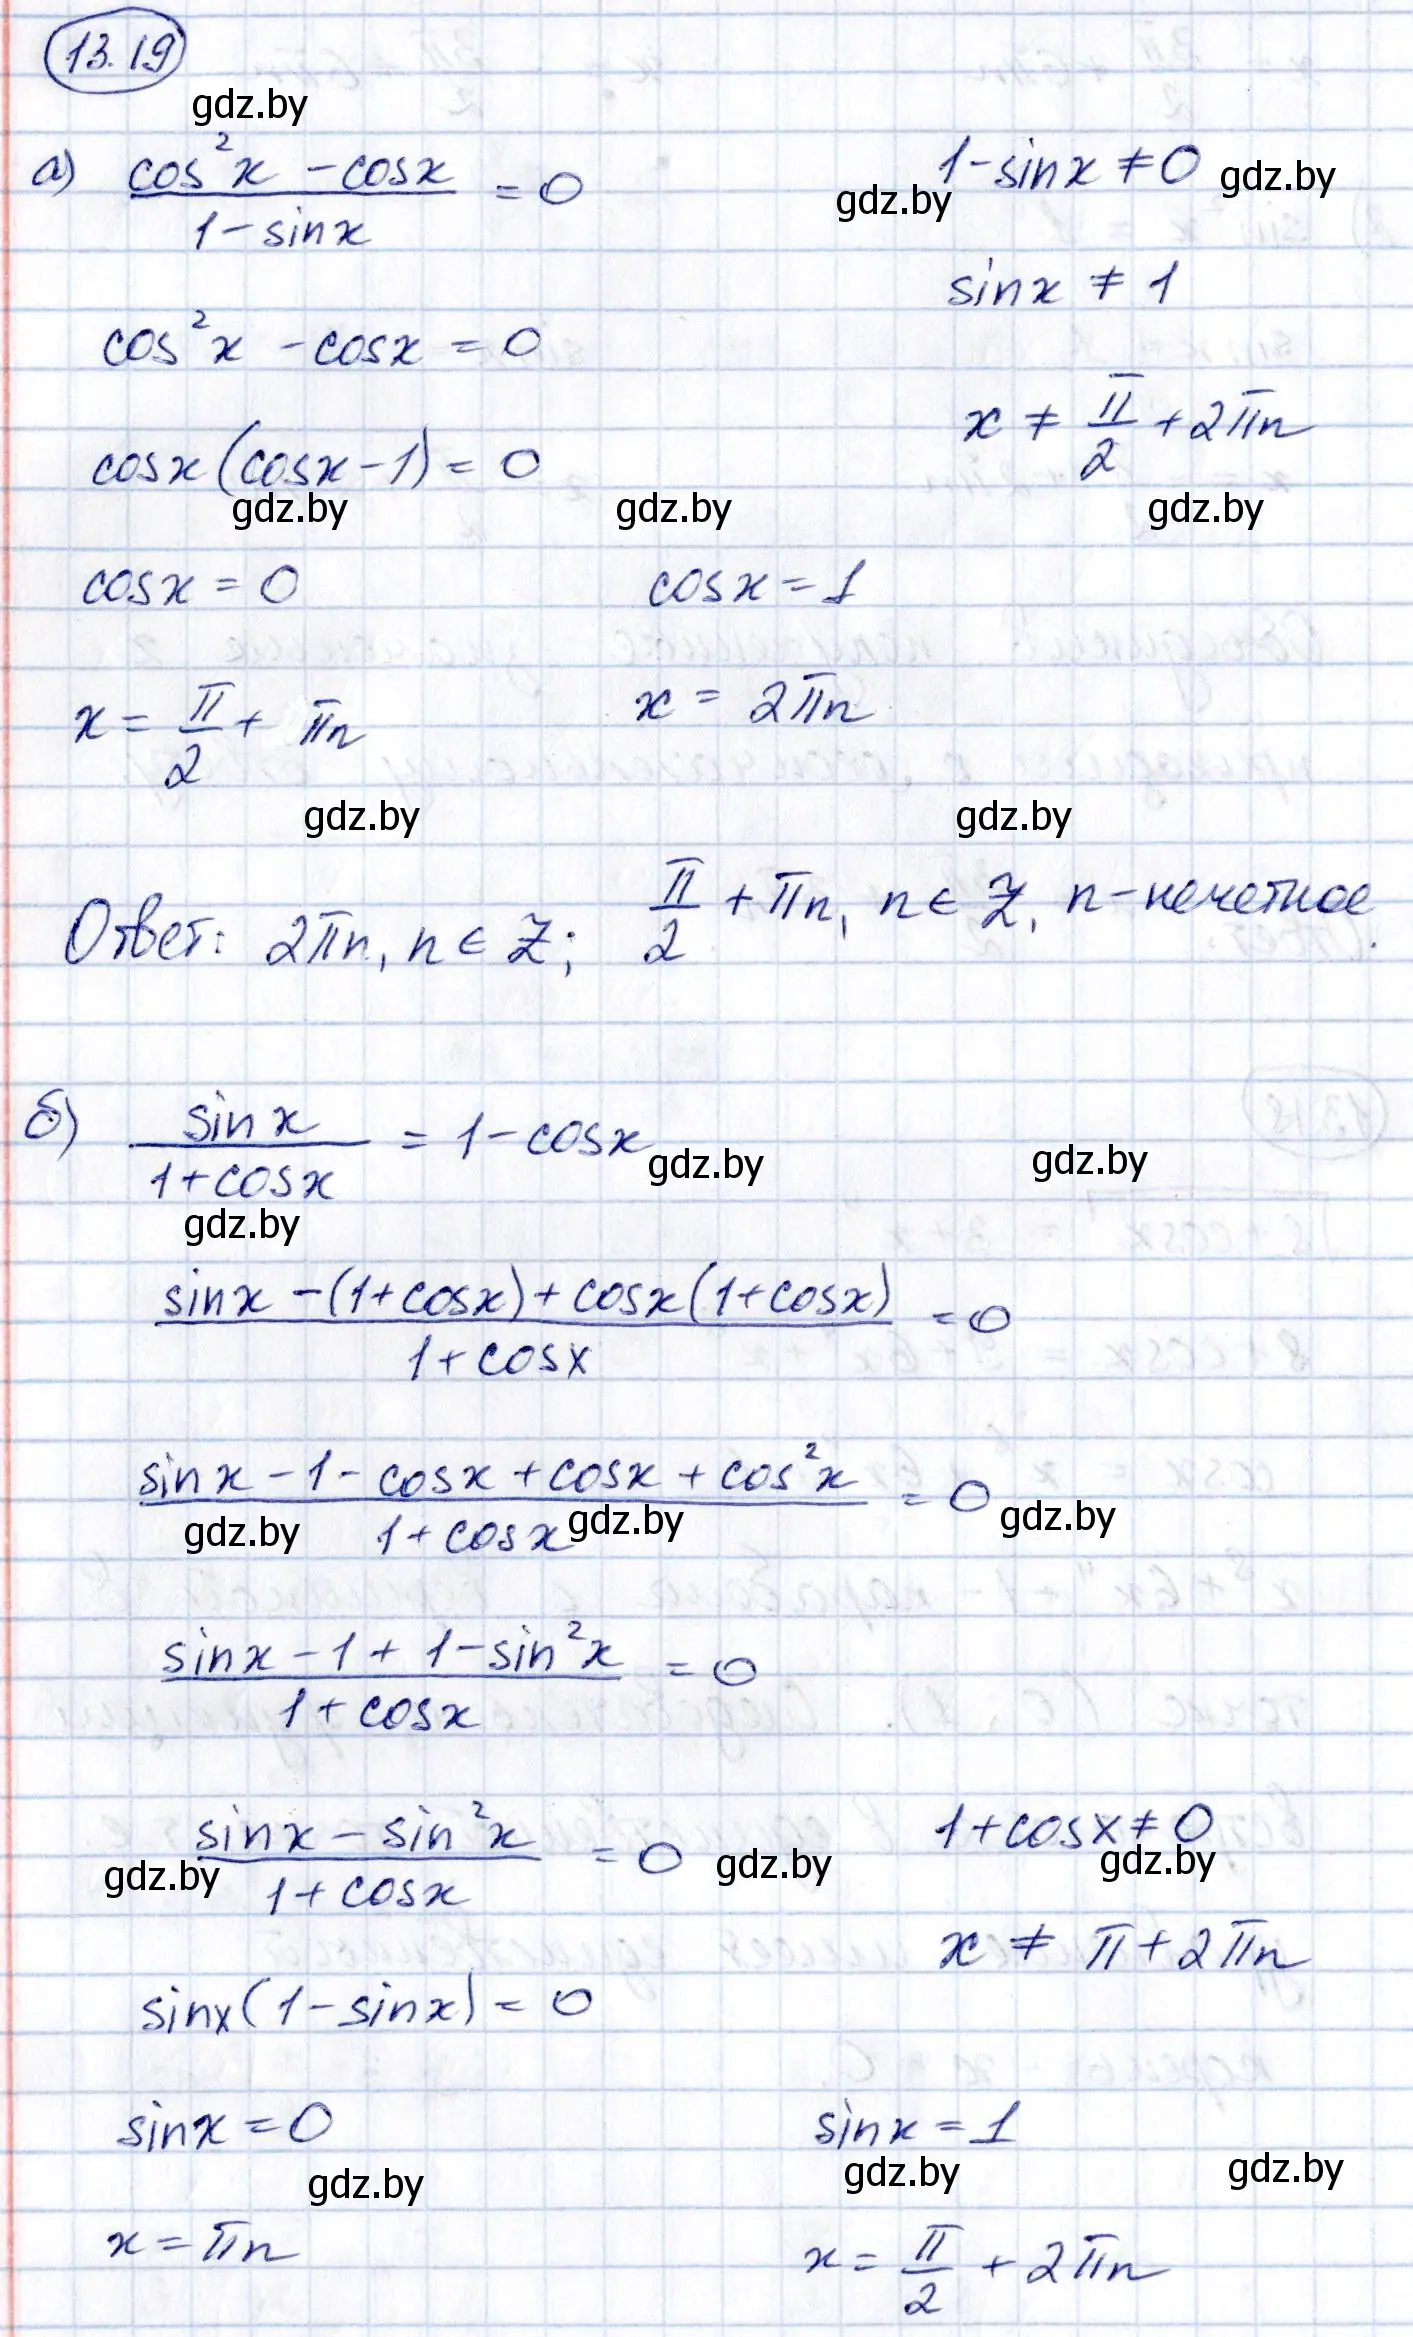 13.19
gdz.by
а) (cos²x - cosx)/(1 - sinx) = 0     1 - sinx ≠ 0
gdz.by gdz.by
sinx ≠ 1
cos²x - cosx = 0
x ≠ π/2 + 2πn
cosx(cosx - 1) = 0
gdz.by gdz.by gdz.by
cosx = 0     cosx = 1
x = π/2 + πn     x = 2πn
gdz.by gdz.by
Ответ: 2πn, n ∈ Z; π/2 + πn, n ∈ Z, n - нечетное.
б) sinx/(1 + cosx) = 1 - cosx
gdz.by gdz.by
gdz.by
(sinx - (1 + cosx) + cosx(1 + cosx))/(1 + cosx) = 0
(sinx - 1 - cosx + cosx + cos²x)/(1 + cosx) = 0
gdz.by gdz.by gdz.by
(sinx - 1 + 1 - sin²x)/(1 + cosx) = 0
(sinx - sin²x)/(1 + cosx) = 0     1 + cosx ≠ 0
gdz.by gdz.by gdz.by
x ≠ π + 2πn
sinx(1 - sinx) = 0
sinx = 0     sinx = 1
gdz.by gdz.by gdz.by
x = πn     x = π/2 + 2πn